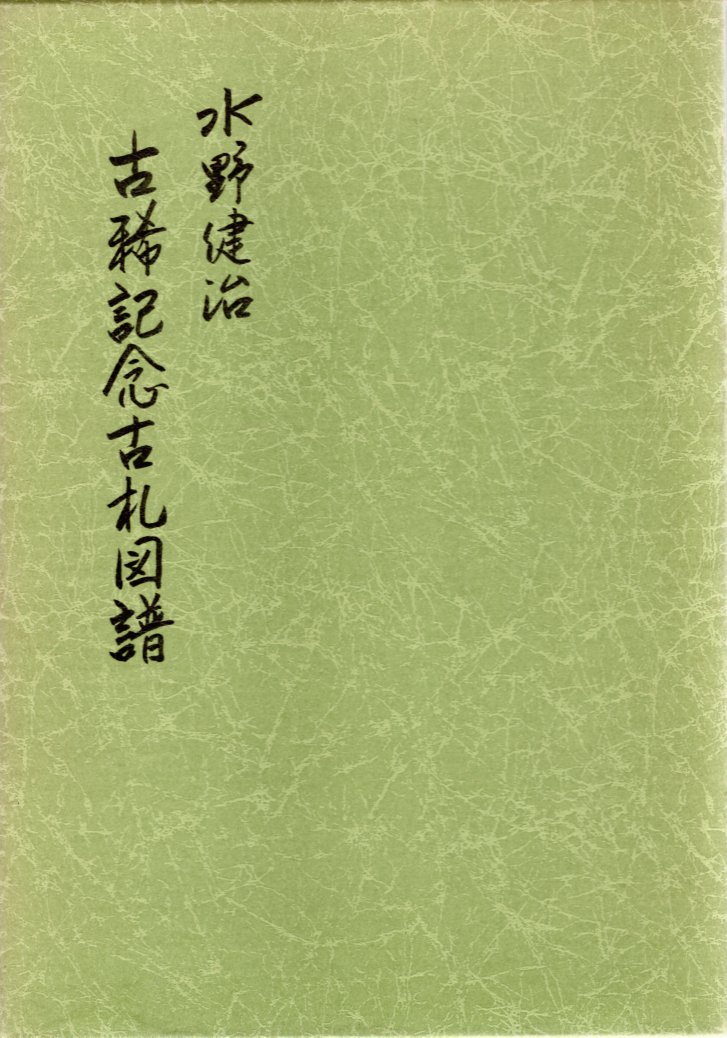 水野健治
古稀記念古札図譜